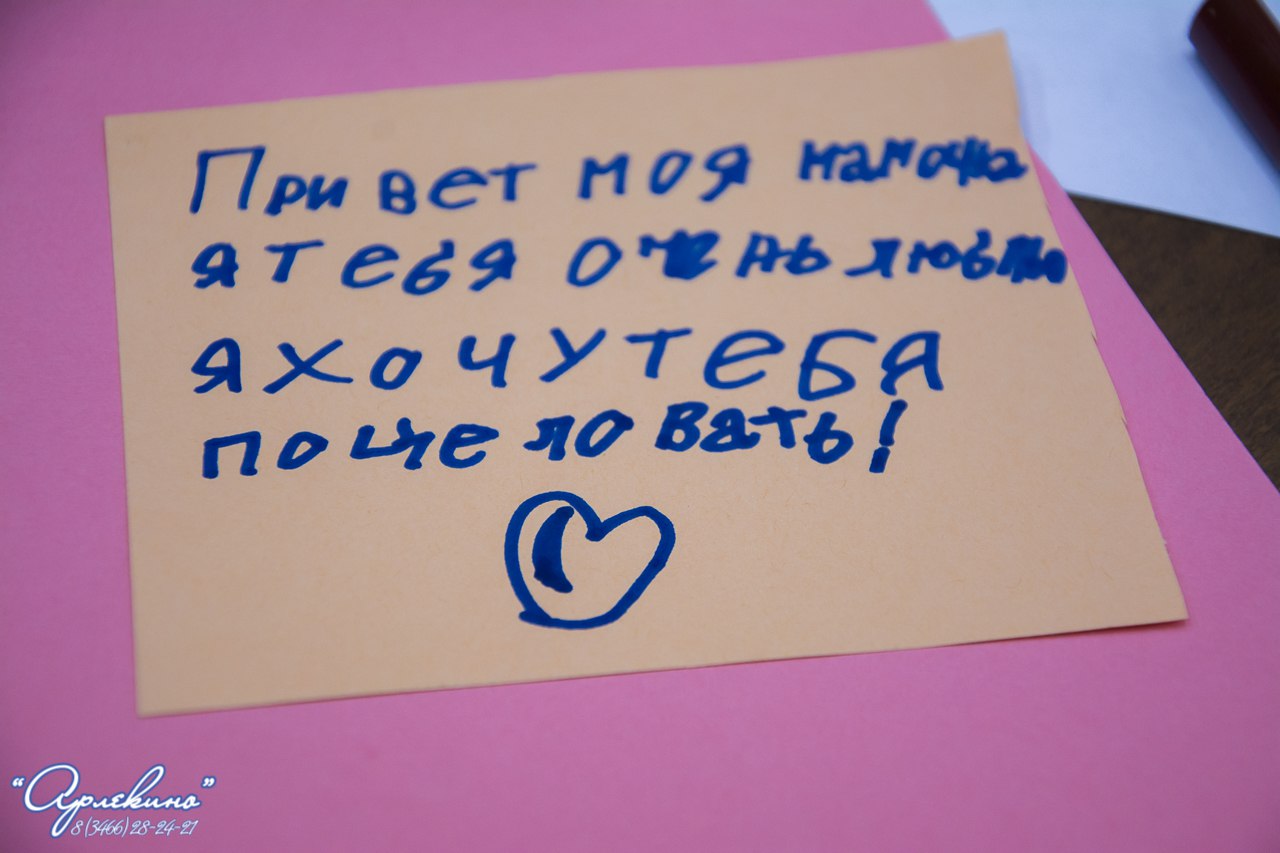 Привет моя мамочка
я тебя очень люблю
я хочу тебя
поцеловать!
"Арлекино"
8 (3466) 28-24-21